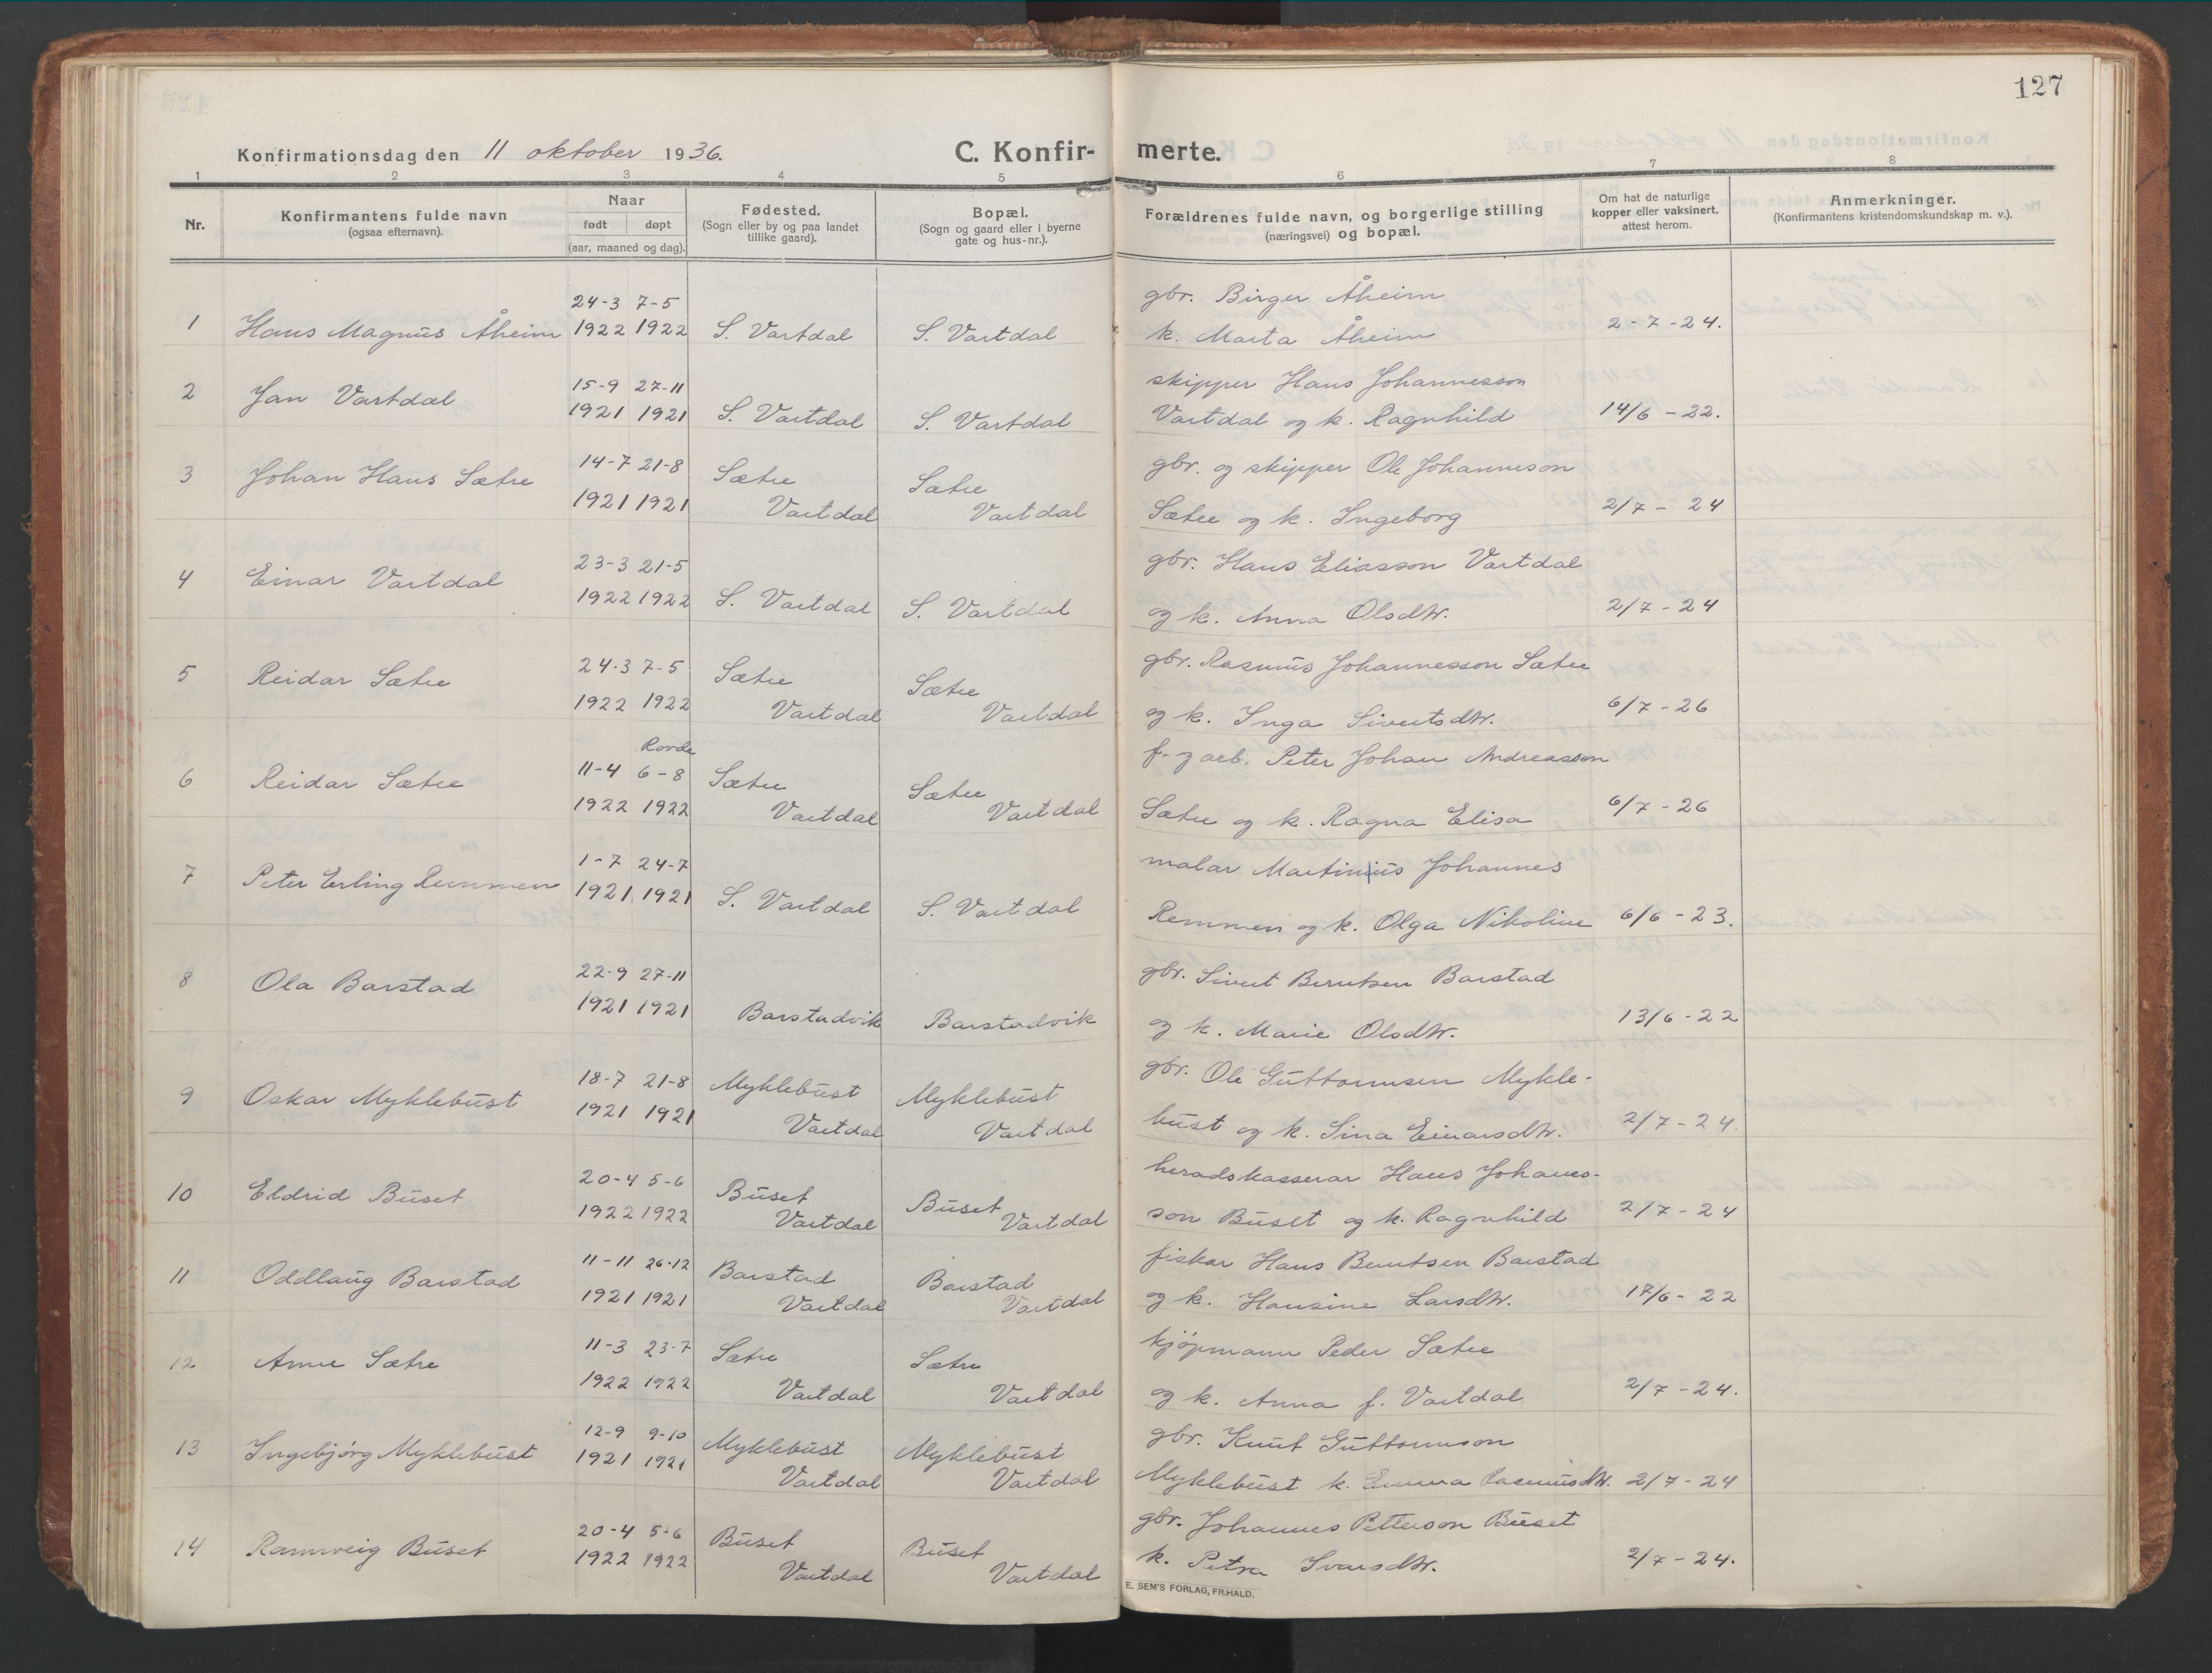 127
Konfirmationsdag den 11 oktober 1936. C. Konfir- merte.
1 2 3 4 5 6 7 8
Nr.
Konfirmantens fulde navn
(ogsaa efternavn).
Naar
født døpt
(aar, maaned og dag).
Fødested.
(Sogn eller by og paa landet
tillike gaard).
Bopæl.
(Sogn og gaard eller i byerne
gate og hus-nr.).
Forældrenes fulde navn, og borgerlige stilling
(næringsvei) og bopæl.
Om hat de naturlige
kopper eller vaksinert,
attest herom.
Anmerkninger.
(Konfirmantens kristendomskundskap m. v.).
24-3 7-5 gbr. Birger Åheim
1 Hans Magnus Åheim 1922 1922 S. Vartdal S. Vartdal k. Marta Åheim 2-7-24.
15-9 27-11 skipper Hans Johannesson
2 Jan Vartdal 1921 1921 S. Vartdal S. Vartdal Vartdal og k. Ragnhild 14/6-22.
14-7 21-8 Sætre Sætre gbr. og skipper Ole Johanneson
3 Johan Hans Sætre 1921 1921 Vartdal Vartdal Sætre og k. Ingeborg 2/7-24
23-3 21-5 gbr. Hans Eliasson Vartdal
4 Einar Vartdal 1922 1922 S. Vartdal S. Vartdal og k. Anna Olsdtr. 2/7-24
24-3 7-5 Sætre Sætre gbr. Rasmus Johannesson Sætre
5 Reidar Sætre 1922 1922 Vartdal Vartdal og k. Inga Sivertsdtr. 6/7-26
Rovde
11-4 6-8 Sætre Sætre f. g arb. Peter Johan Andreasson
6 Reidar Sætre 1922 1922 Vartdal Vartdal Sætre og k. Ragna Elisa 6/7-26
1-7 24-7 malar Martinius Johannes
7 Peter Erling Remmen 1921 1921 S. Vartdal S. Vartdal Remmen og k. Olga Nikoline 6/6-23.
22-9 27-11 gbr. Sivert Berntsen Barstad
8 Ola Barstad 1921 1921 Barstadvik Barstadvik og k. Marie Olsdtr. 13/6-22
18-7 21-8 Myklebust Myklebust gbr. Ole Guttormsen Mykle-
9 Oskar Myklebust 1921 1921 Vartdal Vartdal bust og k. Sina Einarsdtr. 2/7-24.
20-4 5-6 Buset Buset heradskasserar Hans Johanes-
10 Eldrid Buset 1922 1922 Vartdal Vartdal son Buset og k. Ragnhild 2/7-24
11-11 26-12 Barstad Barstad fiskar Hans Berntsen Barstad
11 Oddlaug Barstad 1921 1921 Vartdal Vartdal og k. Hansine Larsdtr. 17/6-22
11-3 23-7 Sætre Sætre kjøpmann Peder Sætre
12 Anne Sætre 1922 1922 Vartdal Vartdal og k. Anna f. Vartdal 2/7-24.
12-9 9-10 Myklebust Myklebust gbr. Knut Guttormson
13 Ingebjørg Myklebust 1921 1921 Vartdal Vartdal Myklebust k. Emma Rasmusdtr. 2/7-24
20-4 5-6 Buset Buset gbr. Johannes Petterson Buset
14 Rannveig Buset 1922 1922 Vartdal Vartdal k. Petra Ivarsdtr. 2/7-24.
E. SEM'S FORLAG, FR.HALD.